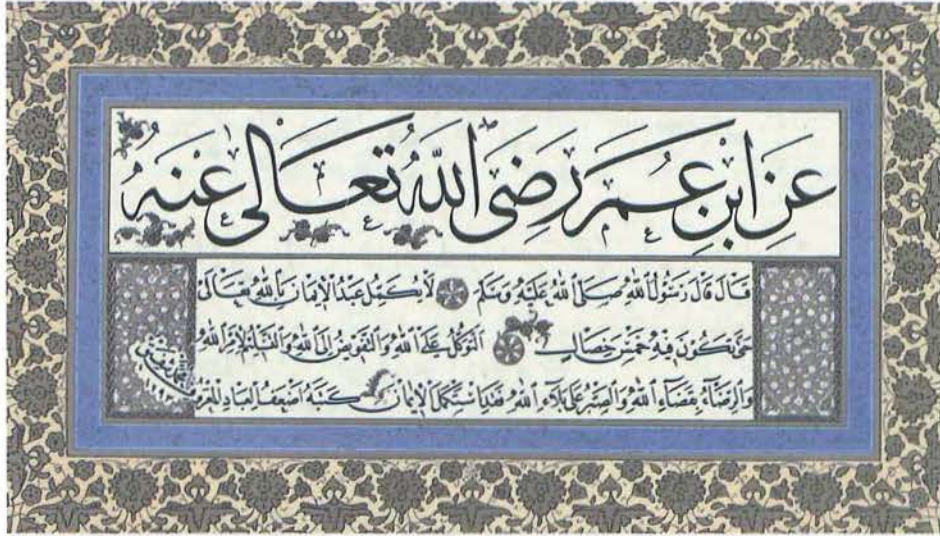 عَنِ ابْنِ عُمَرَ رَضِيَ اللهُ تَعَالٰى عَنْهُ
قَالَ قَالَ رَسُولُ اللهِ صَلَّى اللهُ عَلَيْهِ وَسَلَّمَ لَا يُكَمِّلُ عَبْدُ الْاِيمَانَ بِاللهِ تَعَالٰى
حَتّٰى يَكُونَ فِيهِ خَمْسُ خِصَالٍ اَلتَّوَكُّلُ عَلَى اللهِ وَالتَّفْوِيضُ اِلَى اللهِ وَالتَّسْلِيمُ لِاَمْرِ اللهِ
وَالرِّضَاءُ بِقَضَاءِ اللهِ وَالصَّبْرُ عَلٰى بَلَاءِ اللهِ فَقَدِ اسْتَكْمَلَ الْاِيمَانَ كَتَبَهُ اَضْعَفُ الْعِبَادِ